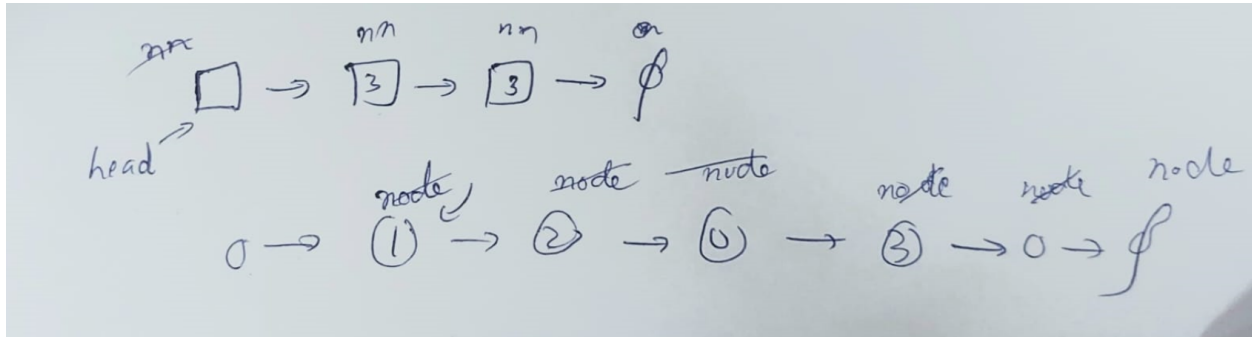 nn nn nn
□ → 3 → 3 → ∅
head
node node node node node node
0 → 1 → 2 → 0 → 3 → 0 → ∅